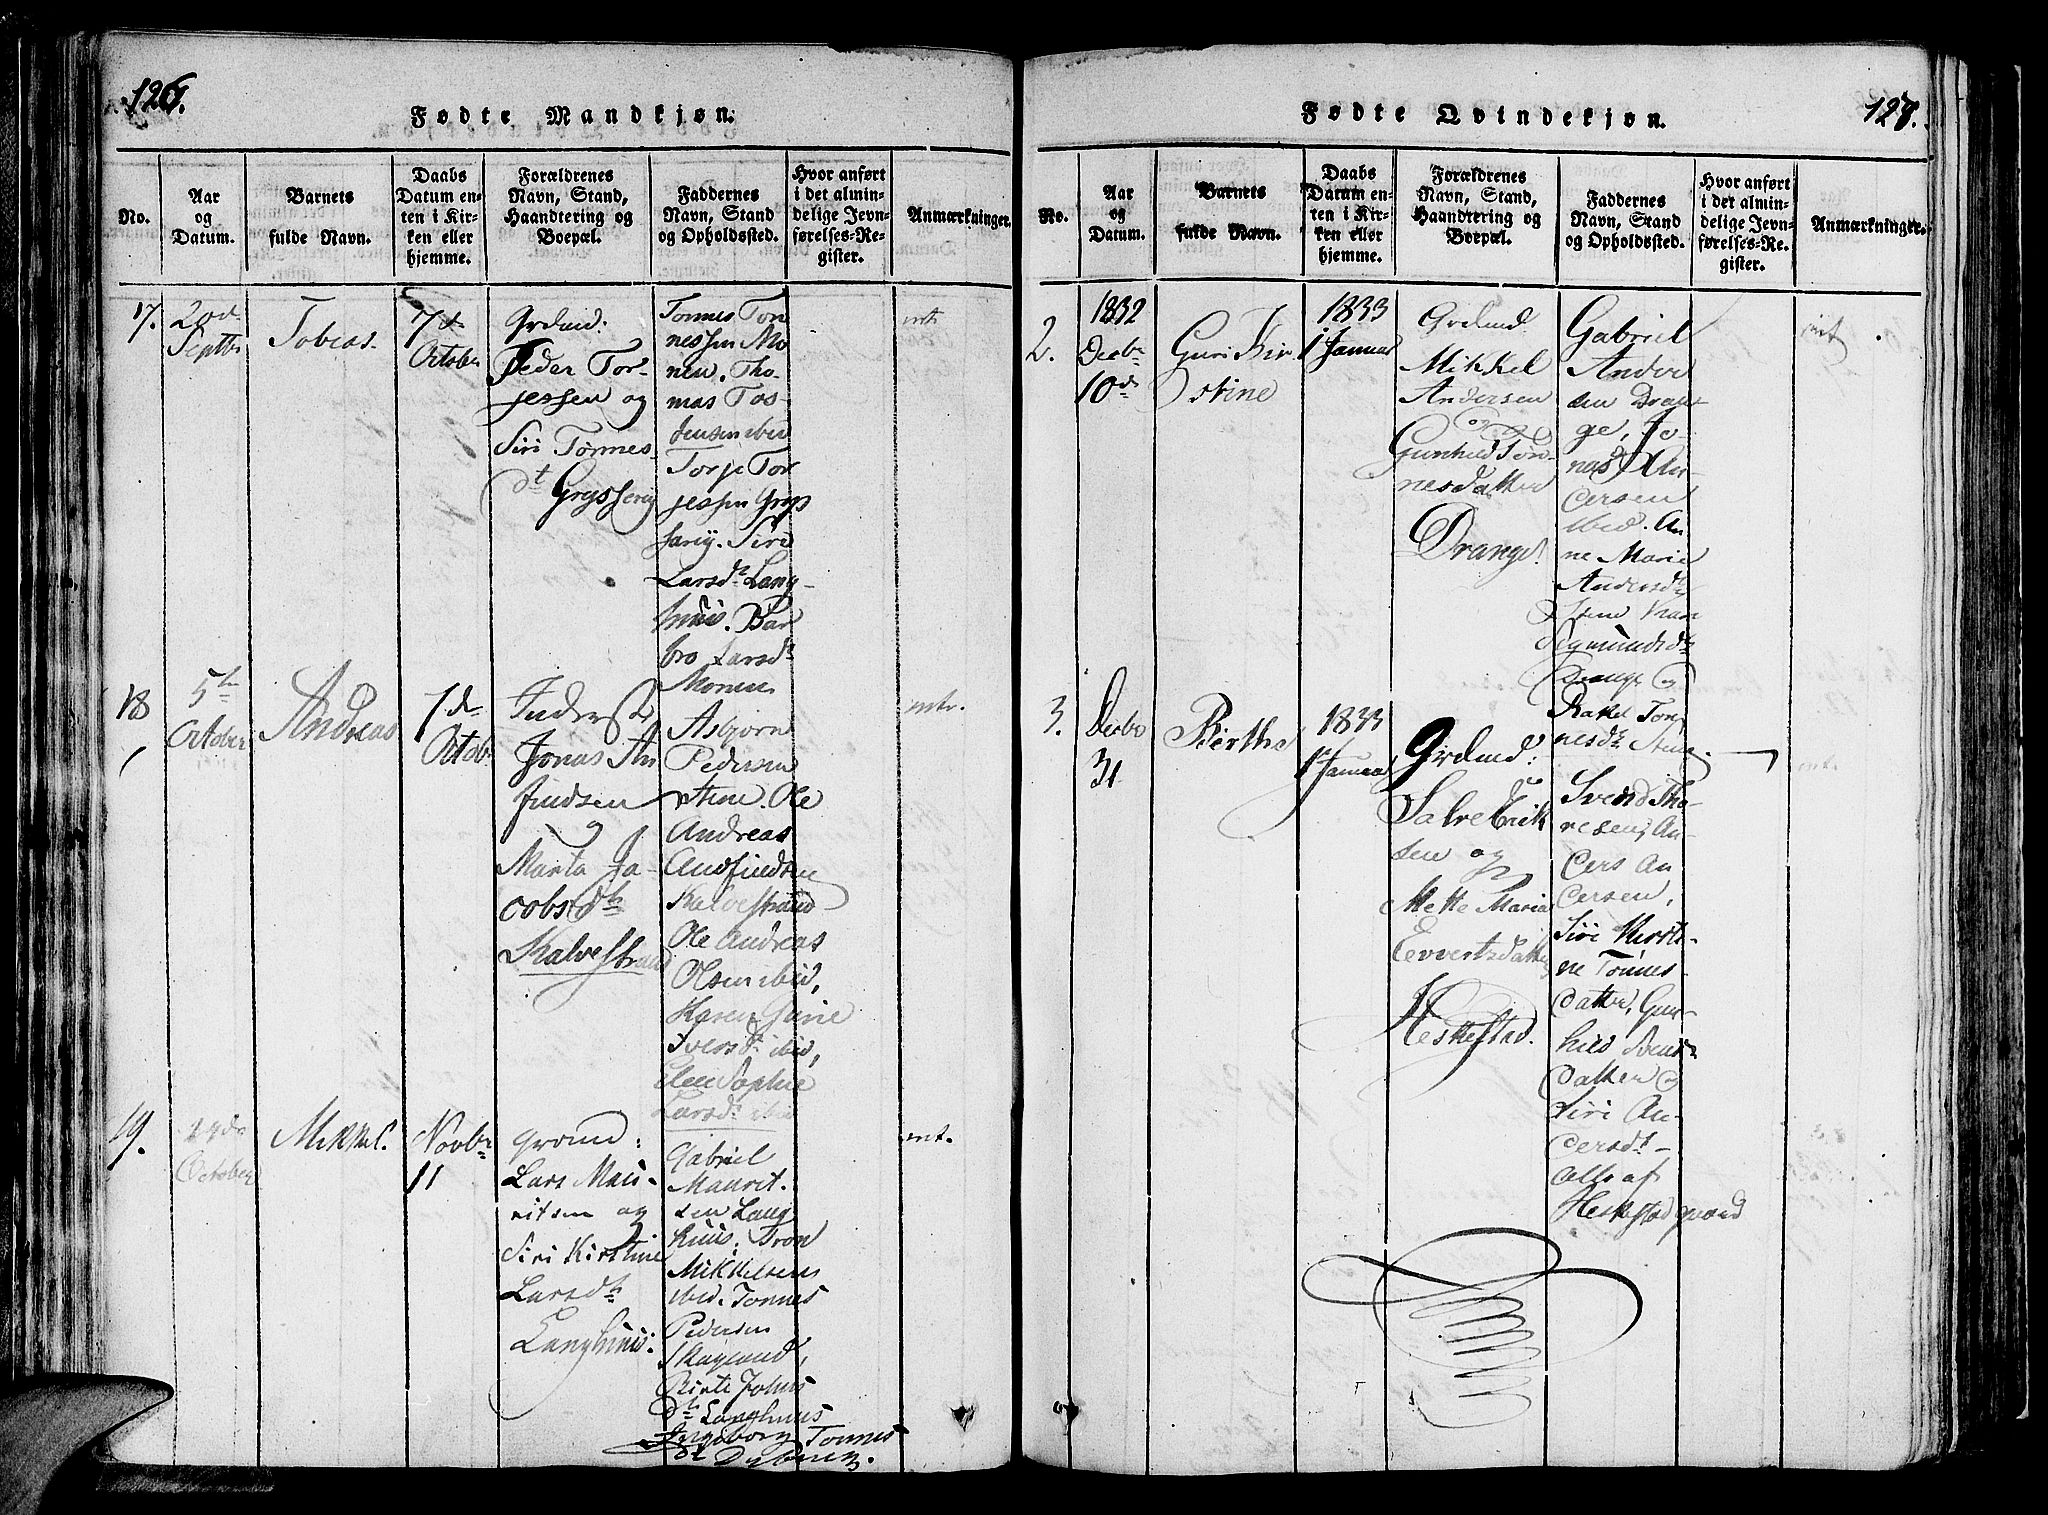 126.
Fødte Mandkjøn.
No.
Aar
og
Datum.
Barnets
fulde Navn.
Daabs
Datum en-
ten i Kir-
ken eller
hjemme.
Forældrenes
Navn, Stand,
Haandtering og
Boepæl.
Faddernes
Navn, Stand
og Opholdssted.
Hvor anført
i det almin-
delige Jevn-
førelses-Re-
gister.
Anmærkninger.
17.
20de
Septbr
Tobias.
7de
October
Grdmd:
Peder Tor-
jessen og
Siri Tønnes
dt Gryssenig
Tonnes Ton
nessen Mo
nen. Tho-
mas Tos-
tensen ibid
Torje Tor
jessen Grys
Siri
Larsdtr Lang-
huus. Bar
bro Larsdtr
Monen
int.
18
5te
October
Andreas
7de
Octob.
Inderst
Jonas An
findsen
og
Marta Ja-
cobsdtr
Kalvestrand
Asbjørn
Pedersen
Stene. Ole
Andreas
Andfindsen
Kalvestrand
Ole Andreas
Olsen ibid,
Karen Gurie
Iversdt ibid,
Elen Sophie
Larsdt ibid
intr.
19.
14de
October
Mikkel.
Novbr
11
Grdmd:
Lars Mau-
ritsen og
Siri Kirstine
Larsdtr
Langhuus.
Gabriel
Maurit-
sen Lang
huus; Tron
Mikkelsen
ibid. Tonnes
Pedersen
Skagland,
Birte Johns
dtr Langhuus
Ingeborg Tonnes
dt
int.
127.
Fødte Qvindekjøn.
No.
Aar
og
Datum.
Barnets
fulde Navn.
Daabs
Datum en-
ten i Kir-
ken eller
hjemme.
Forældrenes
Navn, Stand,
Haandtering og
Boepæl.
Faddernes
Navn, Stand
og Opholdssted.
Hvor anført
i det almin-
delige Jevn-
førelses-Re-
gister.
Anmærkninger.
2.
1832
Decbr
10de
Guri Kir-
stine
1833
1 Januar
Grdmd
Mikkel
Andersen
og
Gunhild Tøn-
nesdatter
Drange.
Gabriel
Ander
sen Dran
ge, Jo-
nas An-
dersen
ibid. An
ne Marie
Andersdtr
Stene Karen
Sigmundsdtr
Drange og
Rakel Ton
nesdtr Stene.
int
3.
Decbr
31
Birthe
1833
1 Januar
Grdmd:
Salve Erik
sen og
Mette Maria
Evvertsdatter
Heskestad.
Svend Tho-
resen, An-
ders An
dersen,
Siri Kirsti-
ne Tönnes-
datter, Gun-
hild Svends
datter og
Siri An-
dersdt-
alle af
Heskestad gaard
int.